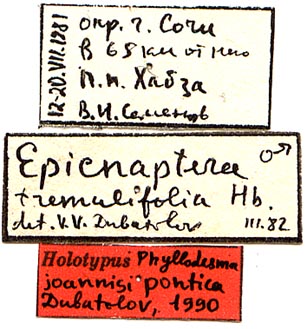 12-20.VII.1981
окр. г. Сочи
в 65 км от него
п.п. Хабза
В.И. Семенов
Epicnaptera ♂
tremulifolia Hb.
det. V.V. Dubatolov III.82
Holotypus Phyllodesma
joannisi pontica
Dubatolov, 1990